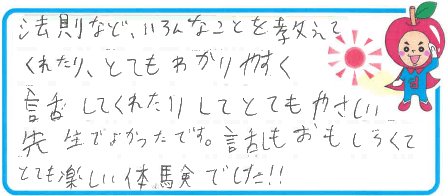 法則など、いろんなことを教えて
くれたり、とてもわかりやすく
話してくれたりしてとてもやさしい
先生でよかったです。話しもおもしろくて
とても楽しい体験でした!!